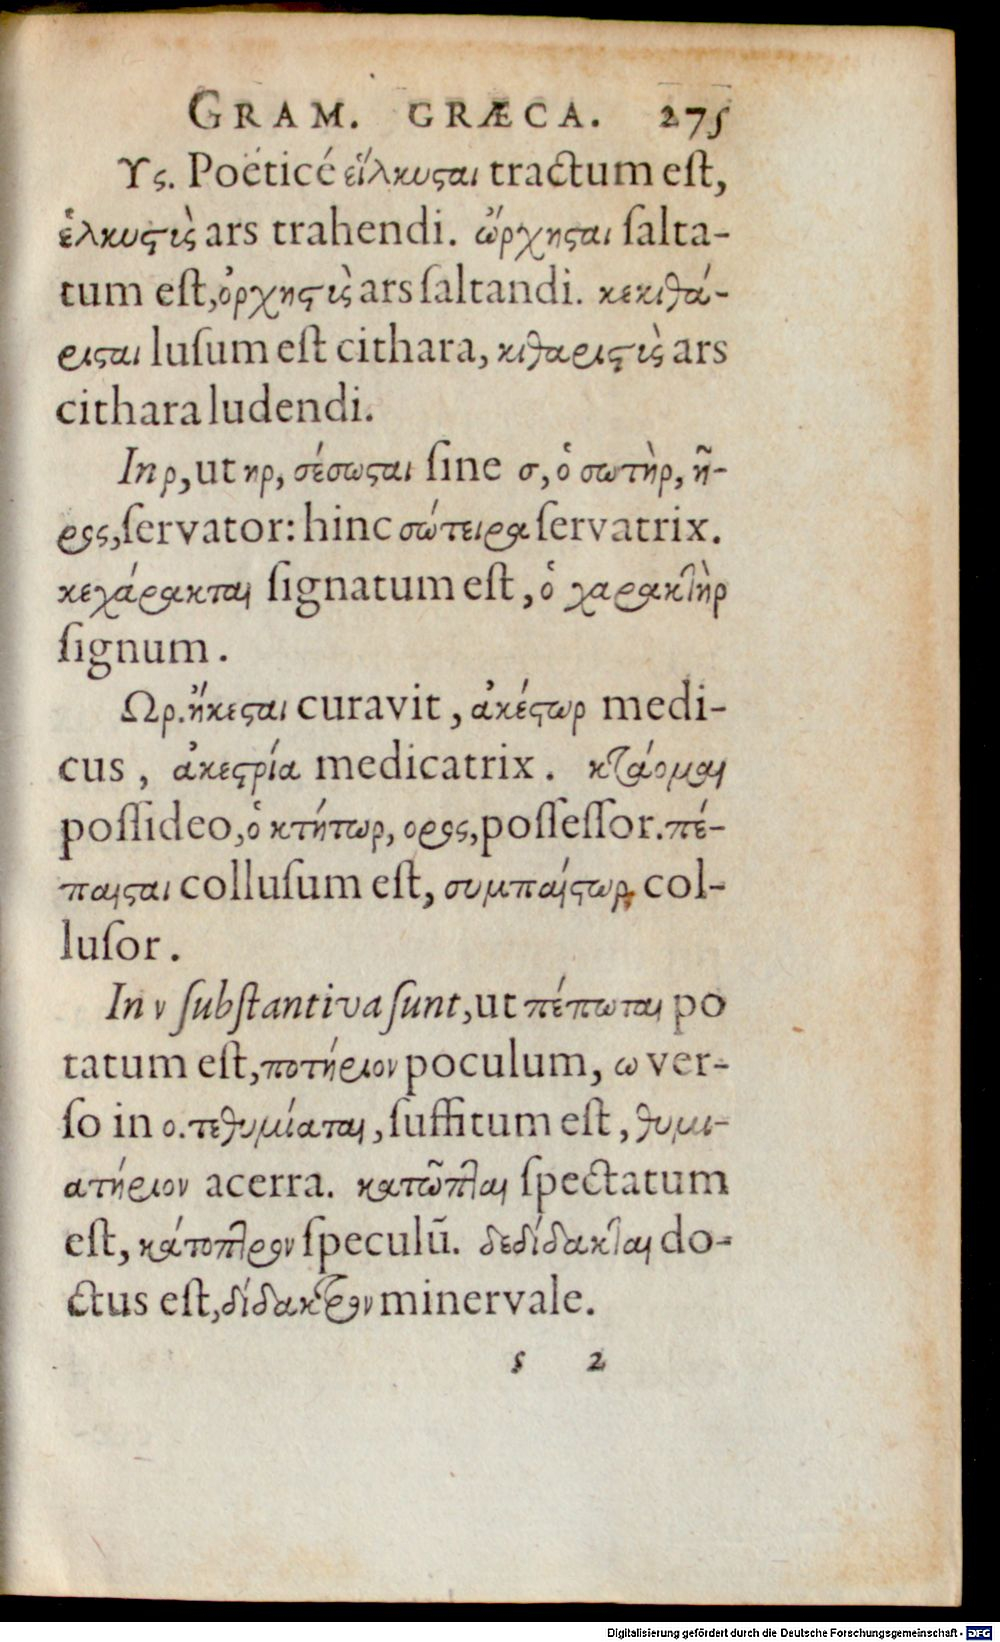 GRAM. GRÆCA. 275
Υς. Poëticé εἵλκυσται tractum eſt,
ἑλκυστὺς ars trahendi. ὤρχησται ſalta-
tum eſt, ὀρχηστὺς ars ſaltandi. κεκιθά-
ρισται luſum eſt cithara, κιθαριστὺς ars
cithara ludendi.
In ρ, ut ηρ, σέσωσται ſine σ, ὁ σωτὴρ, ῆ-
ρος, ſervator: hinc σώτειρα ſervatrix.
κεχάρακται ſignatum eſt, ὁ χαρακτὴρ
ſignum.
Ωρ. ἤκεσται curavit, ἀκέστωρ medi-
cus, ἀκεστρία medicatrix. κτάομαι
poſſideo, ὁ κτήτωρ, ορος, poſſeſſor. πέ-
παισται colluſum eſt, συμπαίστωρ, col-
luſor.
In ν ſubſtantiva ſunt, ut πέπωται po
tatum eſt, ποτήριον poculum, ω ver-
ſo in ο. τεθυμίαται, ſuffitum eſt, θυμι-
ατήριον acerra. κατῶπται ſpectatum
eſt, κάτοπτρον ſpeculū. δεδίδακται do-
ctus eſt, δίδακτρον minervale.
s 2
Digitalisierung gefördert durch die Deutsche Forschungsgemeinschaft - DFG